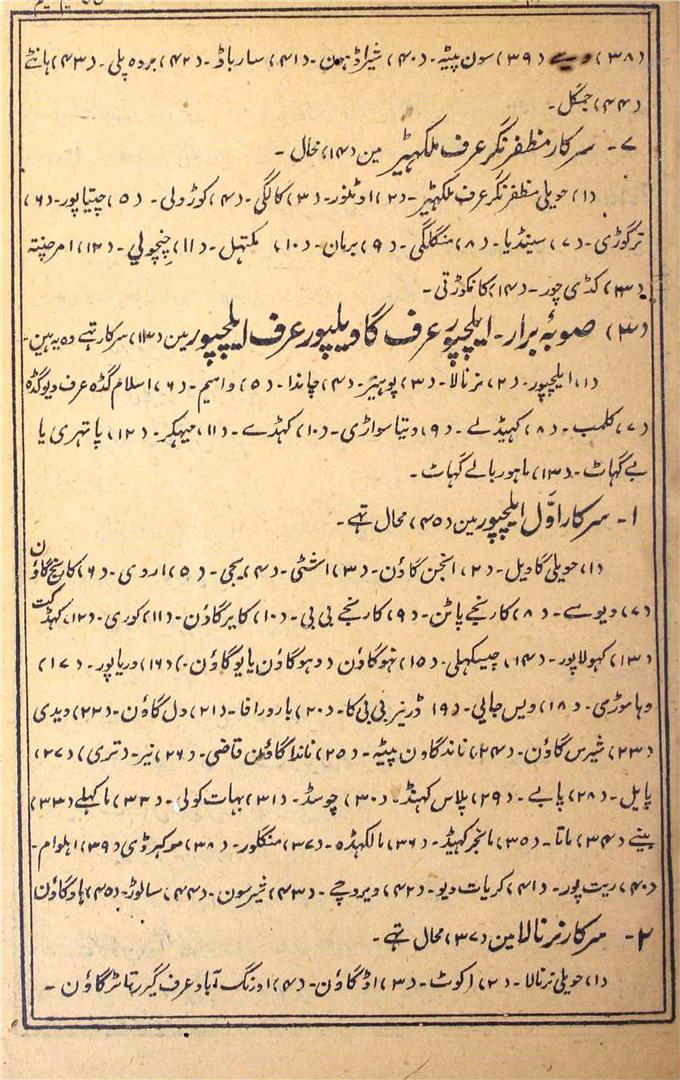 (۳۸) ویسے (۳۹) سون پیٹہ۔ (۴۰) شیراڈہون۔ (۴۱) سارباڈ۔ (۴۲) بردہ پلی۔ (۴۳) ہانٹے
(۴۴) جنگل۔
۷۔ سرکار مظفر نگر عرف ملکہیڑ مین (۱۴) محال۔
(۱) حویلی مظفر نگر عرف ملکہیڑ۔ (۲) اوٹلنور۔ (۳) کالگی۔ (۴) کوڑولی۔ (۵) چیتاپور۔ (۶)
ترگوڑی۔ (۷) سینڈیا۔ (۸) منگلگی۔ (۹) برہان۔ (۱۰) مکتہل۔ (۱۱) چنچولی۔ (۱۲) امرچنتہ
(۱۳) کڈی چور۔ (۱۴) کانکوڑتی۔
(۳) صوبۂ برار۔ ایلچپور عرف گاویلپور عرف ایلچپور مین (۱۳) سرکار تہے وہ یہ ہین۔
(۱) ایلچپور۔ (۲) نرنالا۔ (۳) پوہیز۔ (۴) چاندا۔ (۵) واسیم۔ (۶) اسلام گڈہ عرف دیوگڈہ
(۷) کلمب۔ (۸) کہیڈلے۔ (۹) دتیا سواڑی۔ (۱۰) کہڈے۔ (۱۱) میہکر۔ (۱۲) پاتہری یا
بے گہاٹ۔ (۱۳) ماہور بالے گہاٹ۔
۱۔ سرکار اوّل ایلچپور مین (۴۵) محال تہے۔
(۱) حویلی گاویل۔ (۲) انجن گاؤن۔ (۳) اشٹی۔ (۴) بیجی۔ (۵) اروی۔ (۶) کارنج گاؤن
(۷) دیوسے۔ (۸) کارنجے پاٹن۔ (۹) کارنجے بی بی۔ (۱۰) کایر گاؤن۔ (۱۱) کوری۔ (۱۲) کہڈکت
(۱۳) کہولاپور۔ (۱۴) چیسکہلی۔ (۱۵) نہوگاؤن دوہوگاؤن یا یوگاؤن۔ (۱۶) دریاپور۔ (۱۷)
وہاموڑی۔ (۱۸) ویس جاپی۔ (۱۹ ڈرنیر بی بی کا۔ (۲۰) بارورافا۔ (۲۱) ول گاؤن۔ (۲۲) ویدی
(۲۳) شیرس گاؤن۔ (۲۴) ناندگاون پیٹہ۔ (۲۵) ناندا گاؤن قاضی۔ (۲۶) نیر۔ دتری) (۲۷)
پایل۔ (۲۸) پاپے۔ (۲۹) پلاس کہنڈ۔ (۳۰) چوسڈ۔ (۳۱) بہات کولی۔ (۳۲) ماکہلے (۳۳)
بینے (۳۴) مانا۔ (۳۵) مانجر کہیڈ۔ (۳۶) مالکہڈہ۔ (۳۷) منگلور۔ (۳۸) موکہرڈی (۳۹) اہلوام۔
(۴۰) ریت پور۔ (۴۱) کریات دیو۔ (۴۲) ویروچے۔ (۴۳) شیرسون۔ (۴۴) سالوڑ۔ (۴۵) ہاوگاؤن
۲۔ سرکار نرنالا مین (۳۷) محال تہے۔
(۱) حویلی نرنالا۔ (۲) اکوٹ۔ (۳) اڈگاؤن۔ (۴) اورنگ آباد عرف گیر رتاٹر گاؤن۔